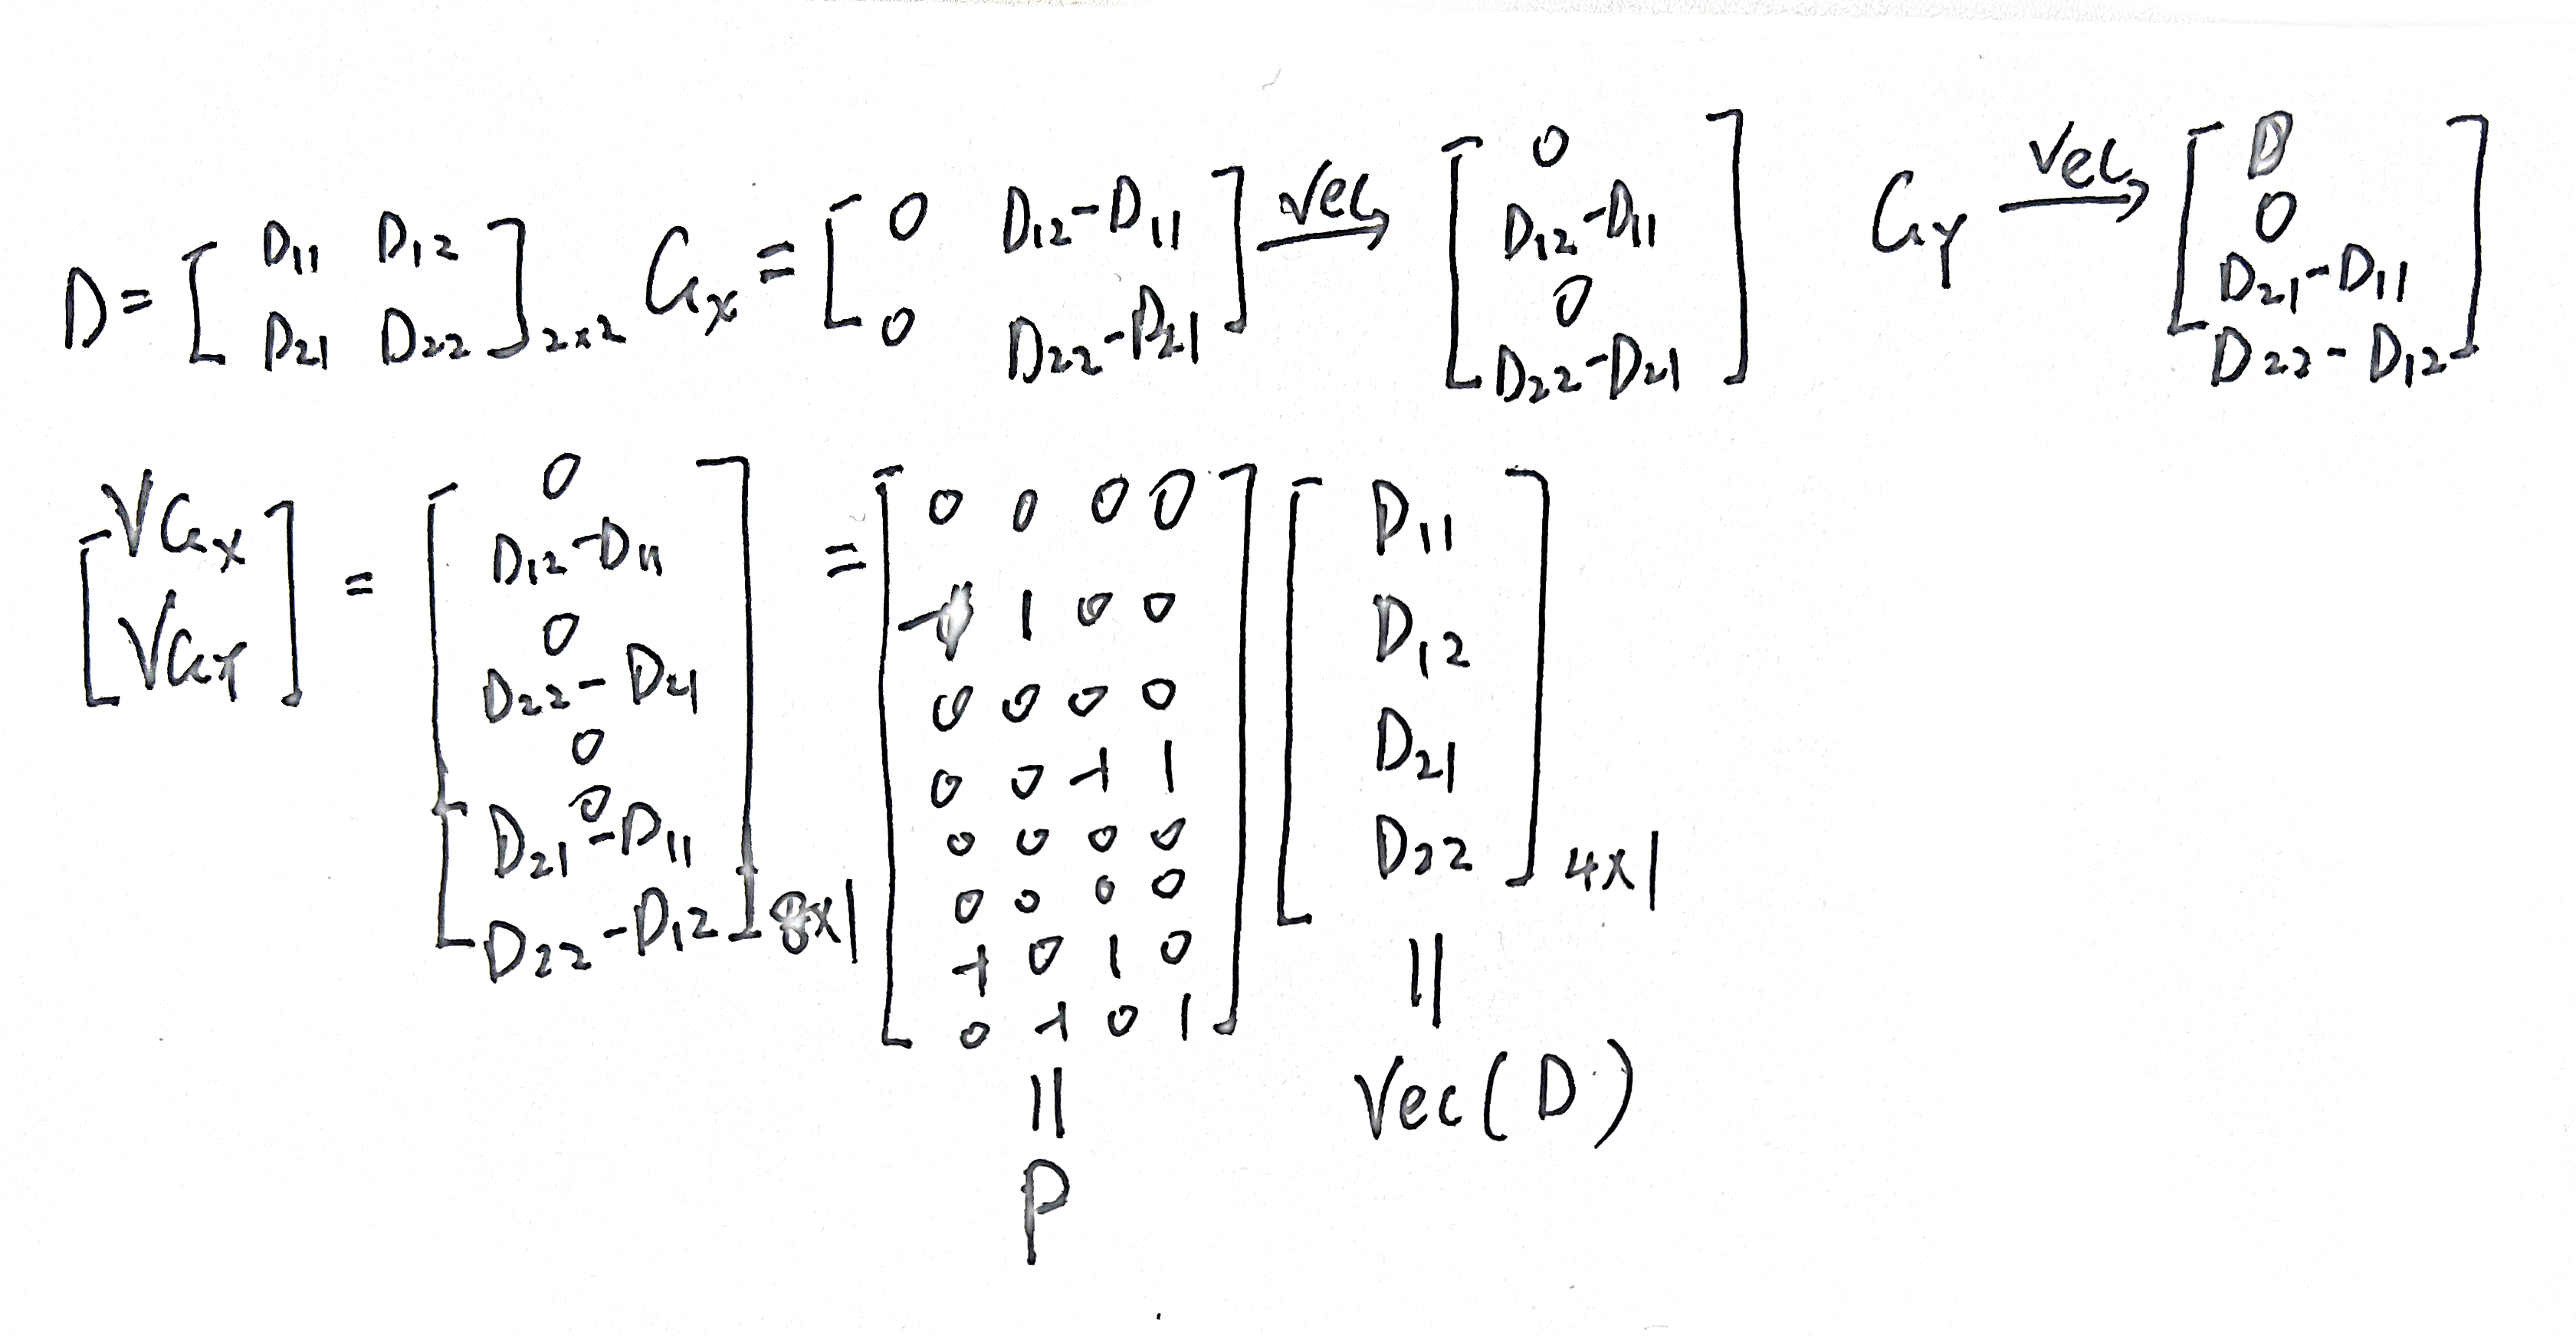 D = [ D11 D12 ; D21 D22 ]2×2 Gx = [ 0 D12-D11 ; 0 D22-D21 ] vec→ [ 0 ; D12-D11 ; 0 ; D22-D21 ] GY vec→ [ 0 ; 0 ; D21-D11 ; D22-D12 ]
[ VGx ; VGY ] = [ 0 ; D12-D11 ; 0 ; D22-D21 ; 0 ; 0 ; D21-D11 ; D22-D12 ]8×1 = [ 0 0 0 0 ; -1 1 0 0 ; 0 0 0 0 ; 0 0 -1 1 ; 0 0 0 0 ; 0 0 0 0 ; -1 0 1 0 ; 0 -1 0 1 ] [ D11 ; D12 ; D21 ; D22 ]4×1
|| ||
P Vec(D)